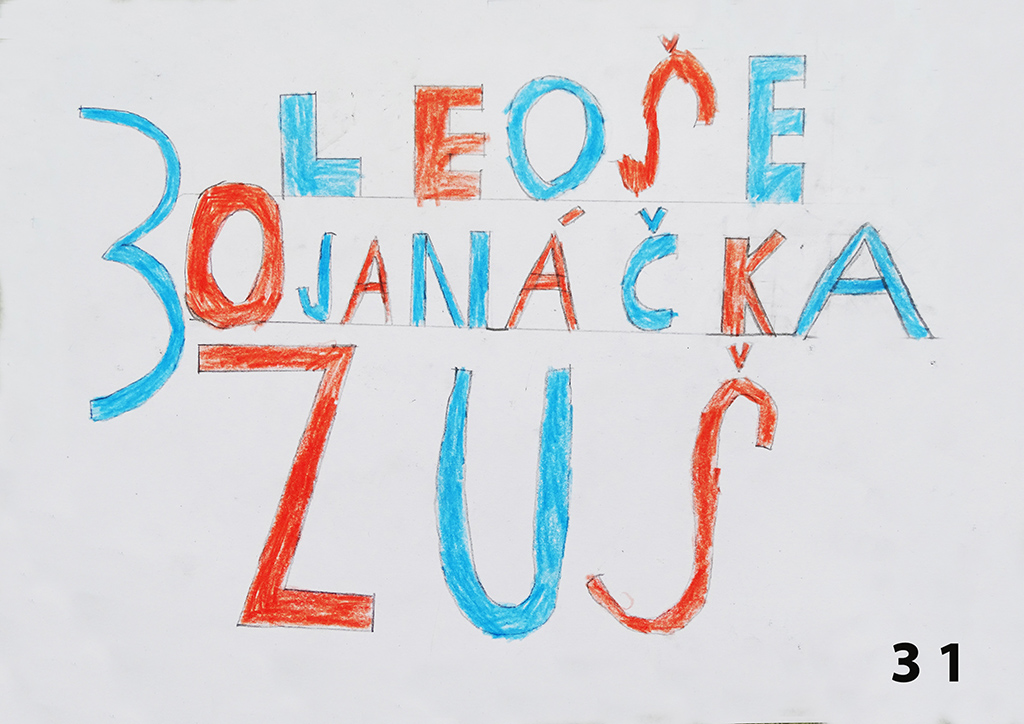 30
LEOŠE
JANÁČKA
ZUŠ
3 1